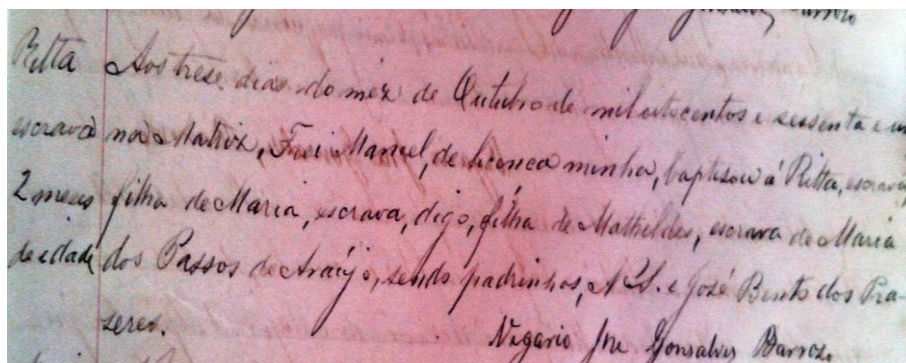 Barroso
Ritta Aos trese dias do mez de Outubro de mil oitocentos e sessenta e um
escrava na Matriz, Frei Manoel, de licença minha, baptisou á Ritta, escrava,
2 meses filha de Maria, escrava, digo, filha de Mathildes, escrava de Maria
de idade dos Passos de Araújo, sendo padrinhos, N. S. e José Bento dos Pra-
seres.
Vegario José Gonsalves Barroso